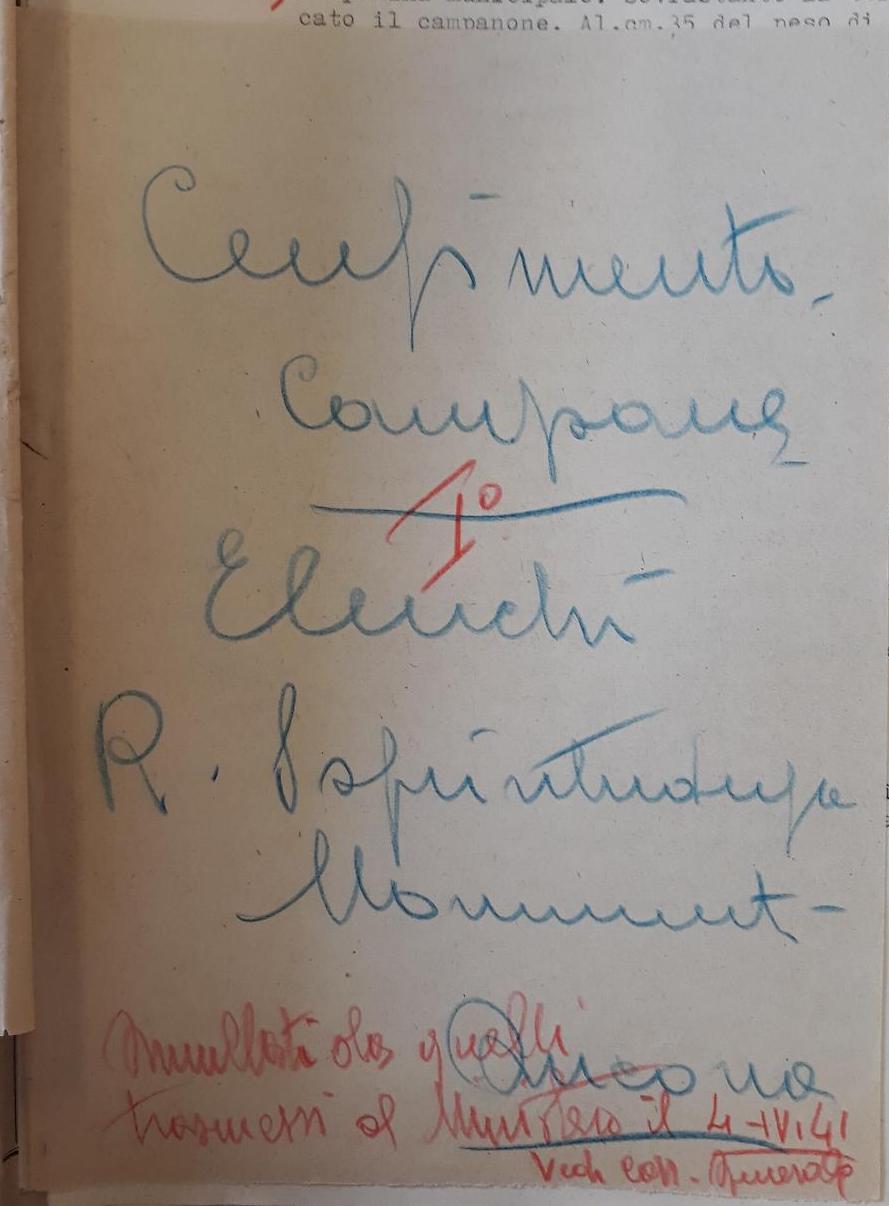 cato il campanone. Al.cm.35 del peso di
Censimento
Campane
1°
Elenchi
R. Soprintendenza
Monument-
Ancona
Annullati da quelli
trasmessi al Ministero il 4-IV.41
Vedi Corr. Generale